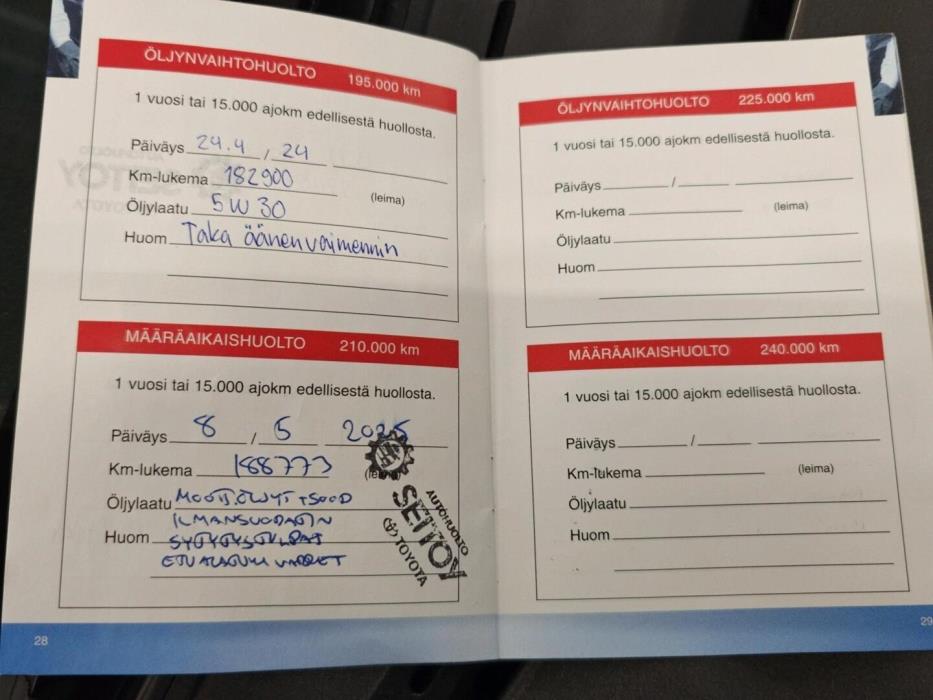 ÖLJYNVAIHTOHUOLTO 195.000 km
1 vuosi tai 15.000 ajokm edellisestä huollosta.
Päiväys 24.4 / 24
Km-lukema 182900 (leima)
Öljylaatu 5W30
Huom Taka äänenvaimennin
MÄÄRÄAIKAISHUOLTO 210.000 km
1 vuosi tai 15.000 ajokm edellisestä huollosta.
Päiväys 8 / 5 2025
Km-lukema 188773 (leima)
Öljylaatu
ILMANSUODATIN
Huom SYTYTYSTULPAT
ETU ALATUKI VARRET
AUTOHUOLTO
SEITOY
TOYOTA
28
ÖLJYNVAIHTOHUOLTO 225.000 km
1 vuosi tai 15.000 ajokm edellisestä huollosta.
Päiväys /
Km-lukema (leima)
Öljylaatu
Huom
MÄÄRÄAIKAISHUOLTO 240.000 km
1 vuosi tai 15.000 ajokm edellisestä huollosta.
Päiväys /
Km-lukema (leima)
Öljylaatu
Huom
29